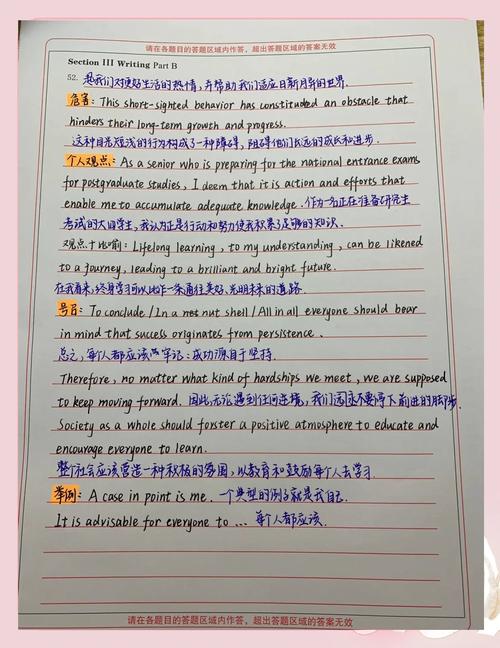 请在各题目的答题区域内作答，超出答题区域的答案无效
Section III Writing Part B
52. 起我们对更好生活的热情，并帮助我们适应日新月异的世界.
危害: This short-sighted behavior has constituded an obstacle that
hinders their long-term growth and progress.
这种目光短浅的行为构成了一种障碍，阻碍他们长远的成长和进步.
个人观点: As a senior who is preparing for the national entrance exams
for postgraduate studies, I deem that it is action and efforts that
enable me to accumulate adequate knowledge. 作为一名正在准备研究生
考试的大四学生，我认为正是行动和努力使我积累了足够的知识.
观点十比喻: Lifelong learning, to my understanding, can be likened
to a journey, leading to a brilliant and bright future.
在我看来，终身学习可以比作一条通往美好、光明未来的道路.
号召: To conclude / In a nut shell / All in all everyone should bear
in mind that success originates from persistence.
总之，每个人都应该牢记：成功源自于坚持.
Therefore, no matter what kind of hardships we meet, we are supposed
to keep moving forward. 因此，无论遇到任何逆境，我们永不要停下前进的脚步.
Society as a whole should forster a positive atmosphere to educate and
encourage everyone to learn.
整个社会应该营造一种积极的氛围，以教育和鼓励每个人去学习.
举例: A case in point is me. 一个典型的例子就是我自己.
It is advisable for everyone to ... 每个人都应该.
请在各题目的答题区域内作答，超出答题区域的答案无效